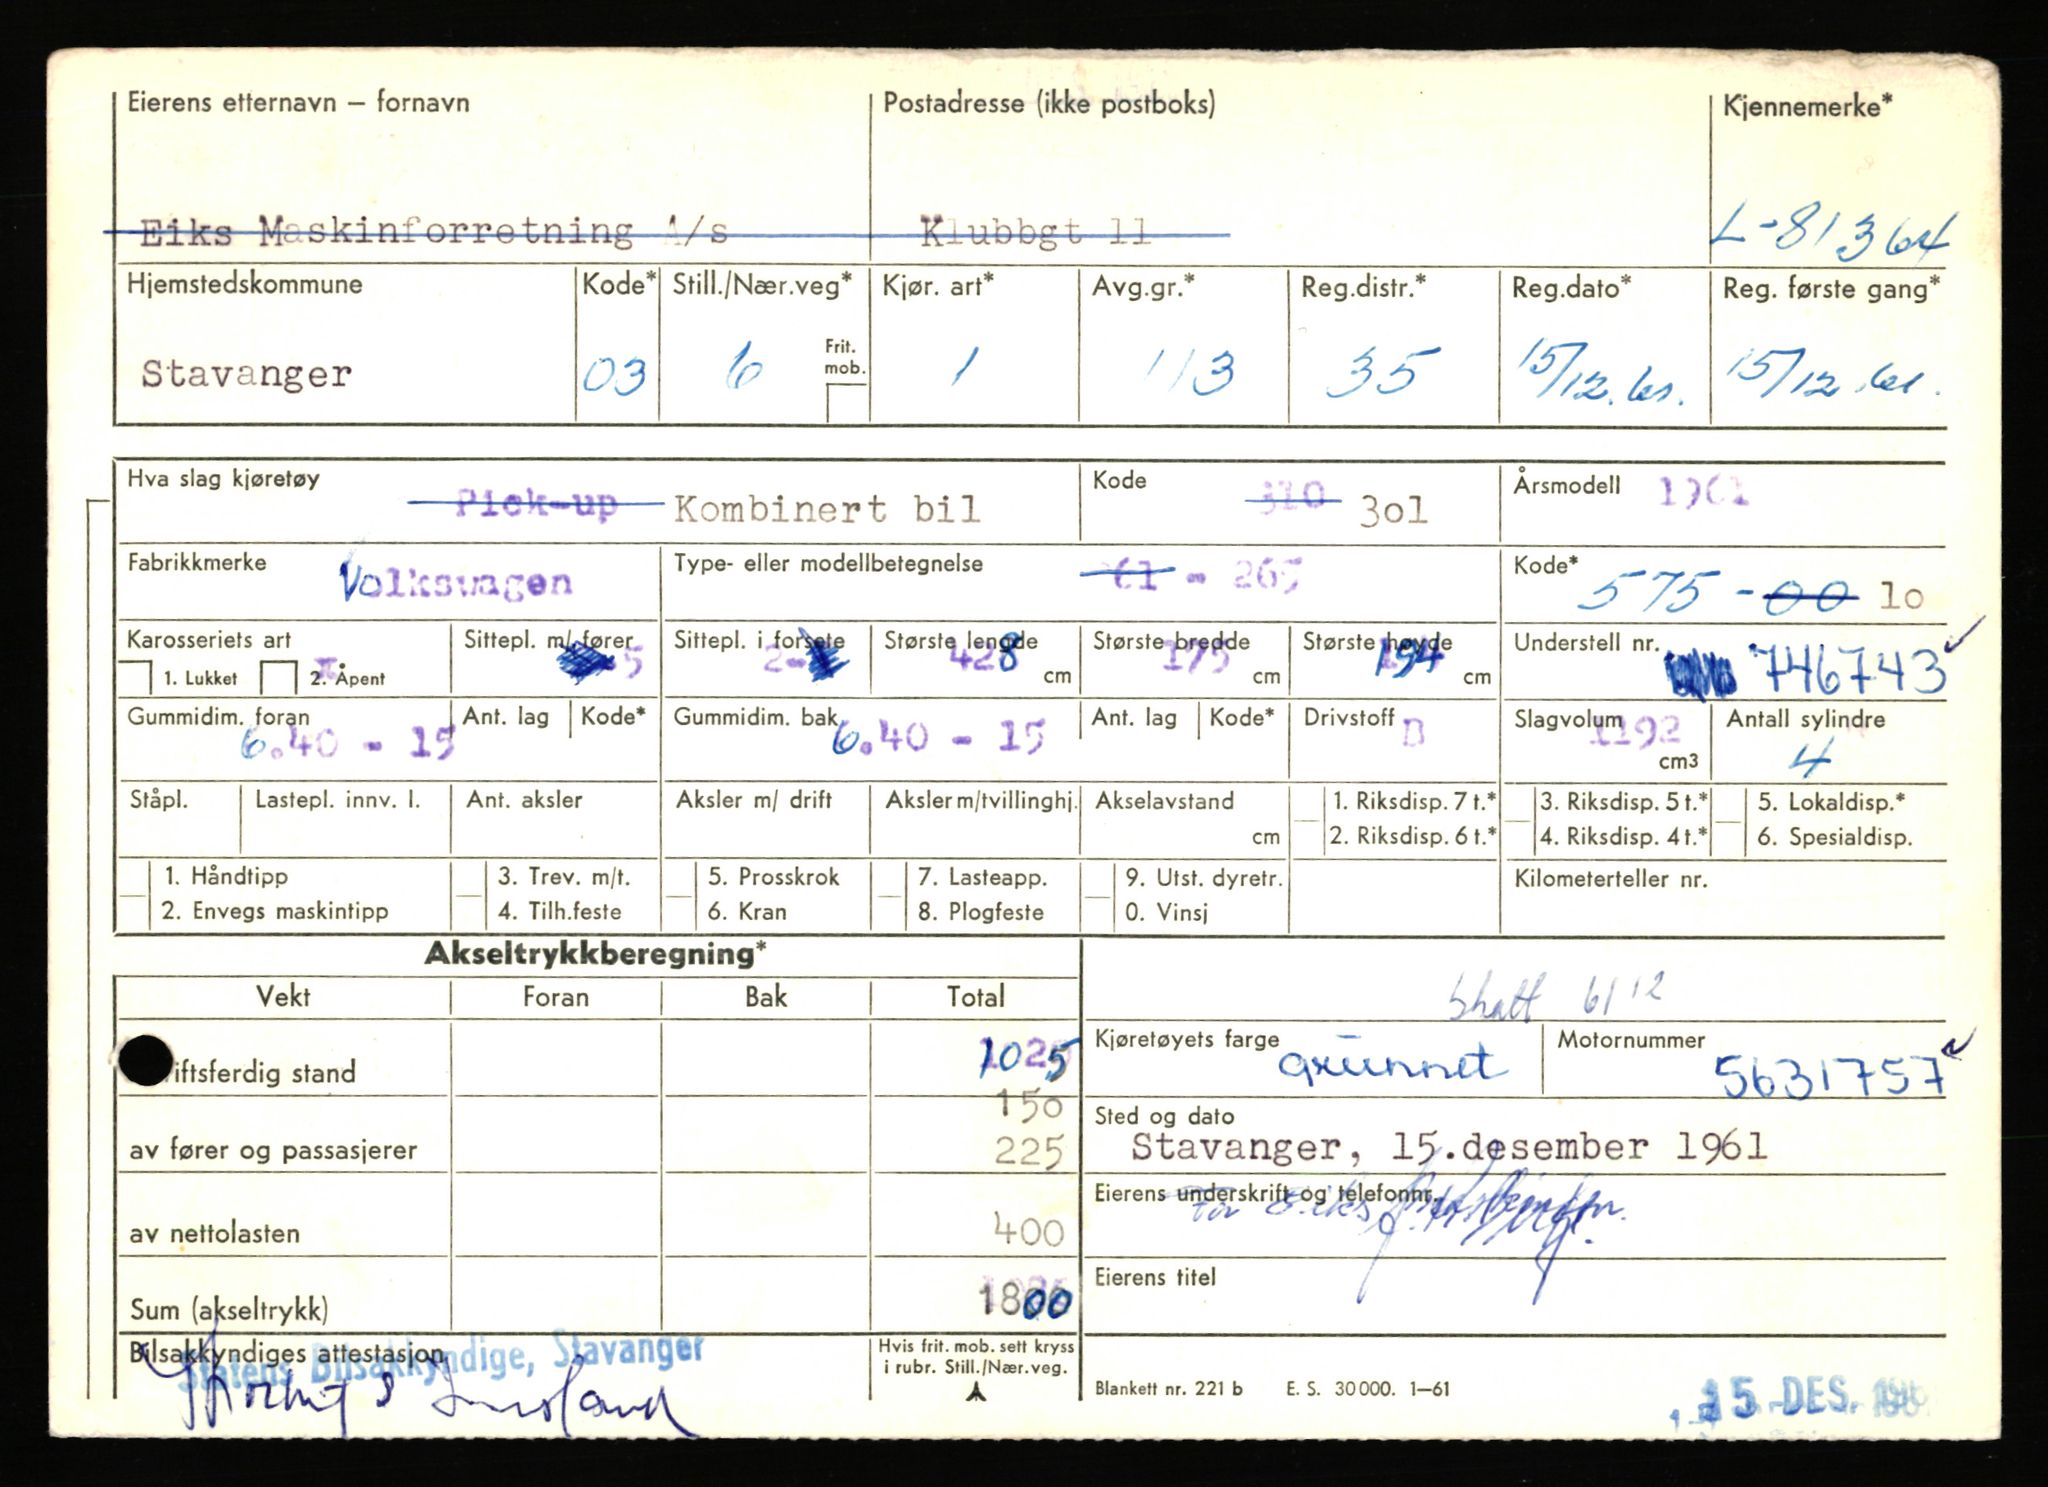 Eierens etternavn – fornavn Postadresse (ikke postboks) Kjennemerke*
Eiks Maskinforretning A/s Klubbgt 11 L-81364
Hjemstedskommune Kode* Still./Nær.veg* Kjør. art* Avg.gr.* Reg.distr.* Reg.dato* Reg. første gang*
Stavanger 03 6 Frit. mob. 1 113 35 15/12.61. 15/12.61.
Hva slag kjøretøy Pick-up Kombinert bil Kode 310 3o1 Årsmodell 1961
Fabrikkmerke Volkswagen Type- eller modellbetegnelse 61 - 265 Kode* 575-00 lo
Karosseriets art Sittepl. m/ fører Sittepl. i forsete Største lengde Største bredde Største høyde Understell nr.
1. Lukket 2. Åpent 5 2- 428 cm 175 cm 154 cm 746743
Gummidim. foran Ant. lag Kode* Gummidim. bak Ant. lag Kode* Drivstoff Slagvolum Antall sylindre
6.40 - 15 6.40 - 15 B 1192 cm3 4
Ståpl. Lastepl. innv. l. Ant. aksler Aksler m/ drift Aksler m/tvillinghj. Akselavstand cm 1. Riksdisp. 7 t.* 3. Riksdisp. 5 t.* 5. Lokaldisp.*
2. Riksdisp. 6 t.* 4. Riksdisp. 4 t.* 6. Spesialdisp.
1. Håndtipp 3. Trev. m/t. 5. Prosskrok 7. Lasteapp. 9. Utst. dyretr. Kilometerteller nr.
2. Envegs maskintipp 4. Tilh.feste 6. Kran 8. Plogfeste 0. Vinsj
Akseltrykkberegning*
Vekt Foran Bak Total
Skatt 6/12
iftsferdig stand 1025
Kjøretøyets farge Motornummer
grunnet 5631757
150
av fører og passasjerer 225
Sted og dato
Stavanger, 15.desember 1961
av nettolasten 400
Eierens underskrift og telefonnr.
For Eiks
Sum (akseltrykk) 1800
Eierens titel
Bilsakkyndiges attestasjon
Statens Bilsakkyndige, Stavanger
Hvis frit. mob. sett kryss
i rubr. Still./Nær.veg.
Blankett nr. 221 b E. S. 30 000. 1–61
15 DES. 196